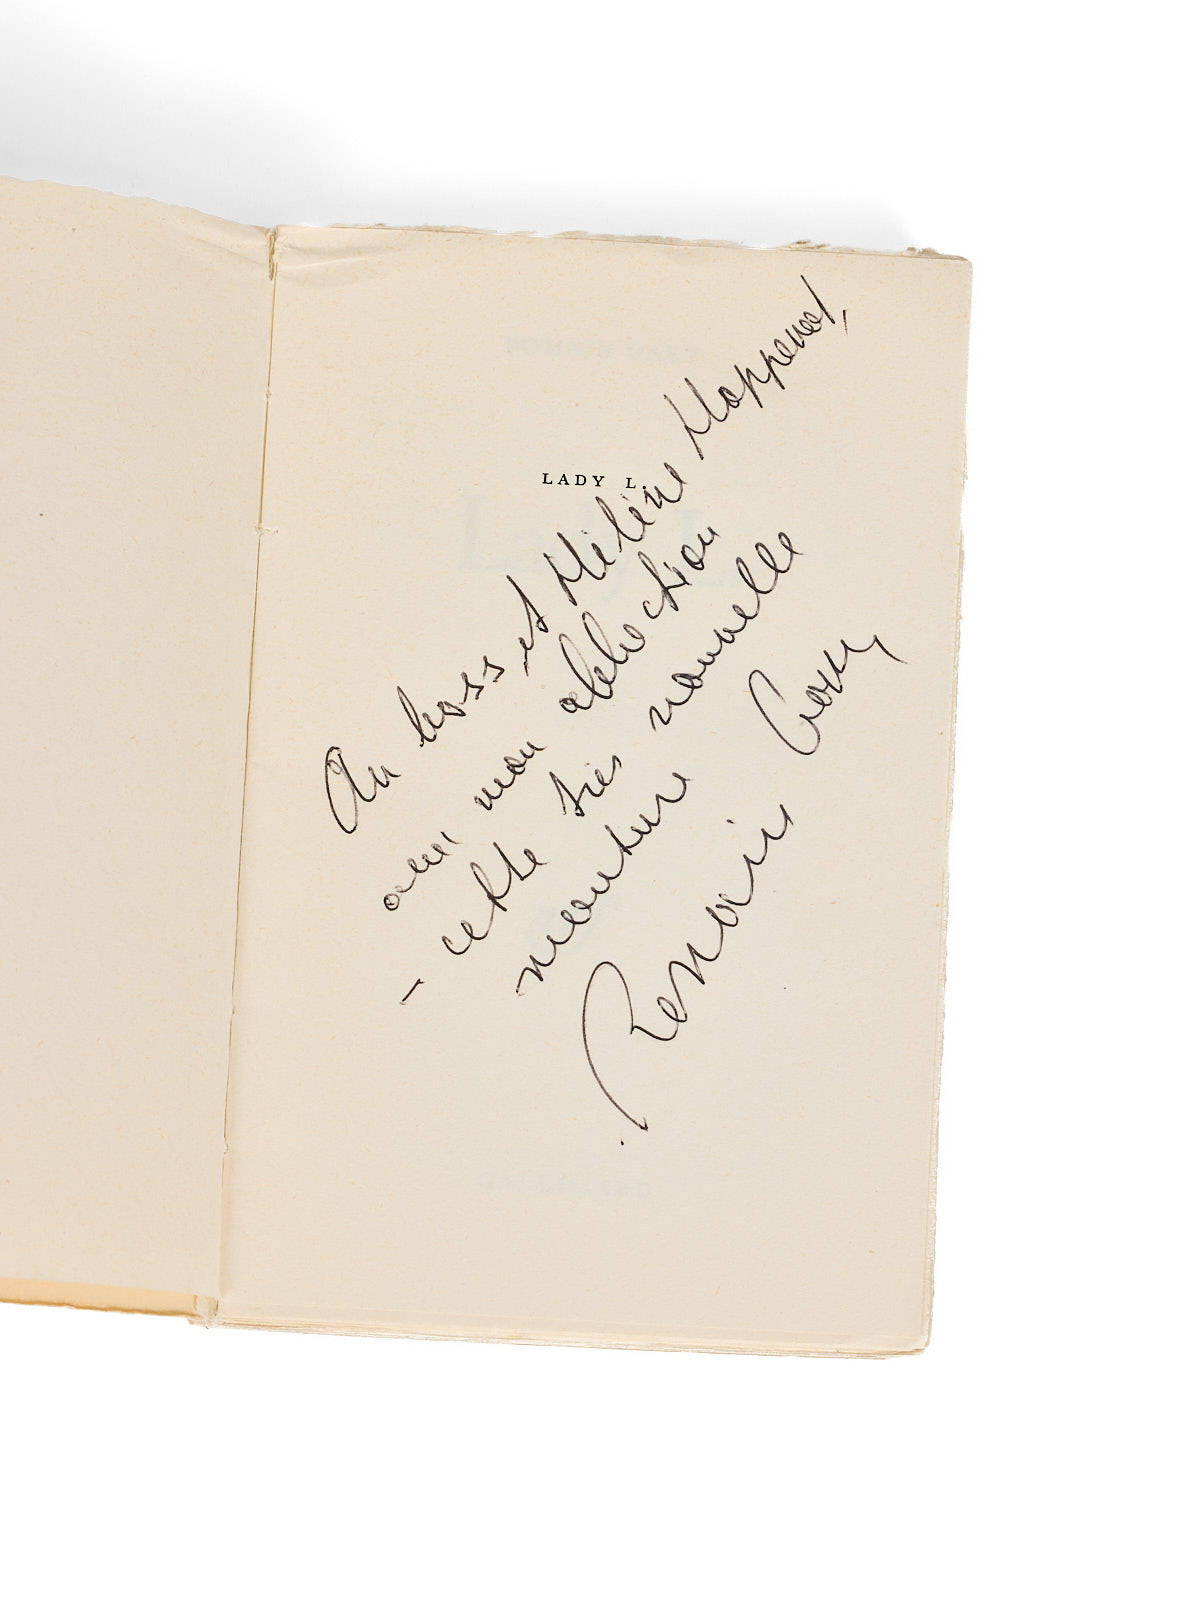 LADY L.
Au boss et Hélène Hoppenot,
avec mon affection
— cette très nouvelle
mouture
Romain Gary